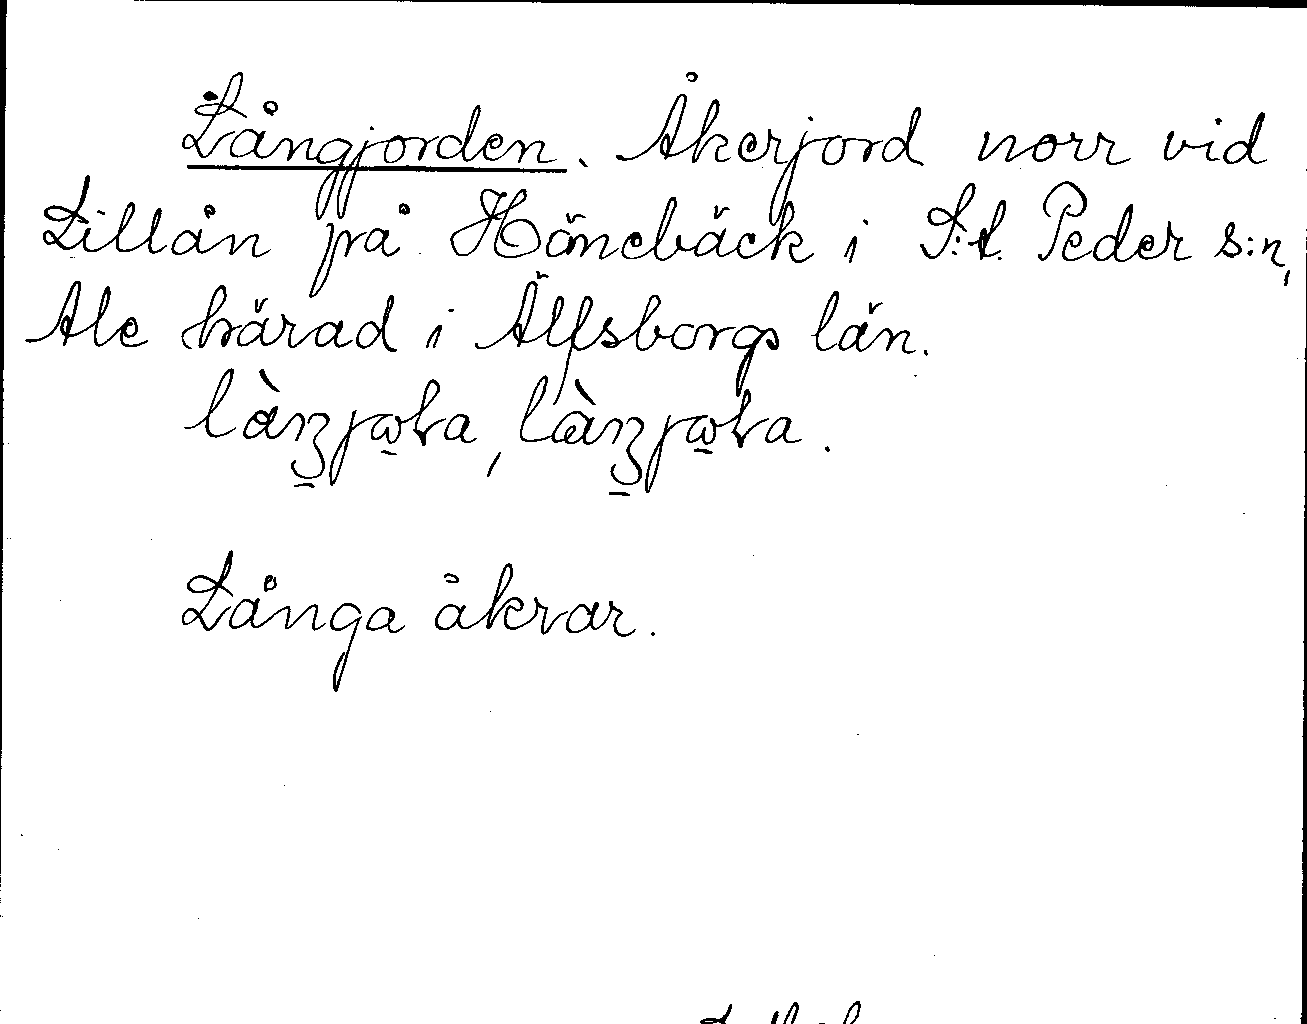 Långjorden. Åkerjord norr vid
Lillån på Hönebäck i S:t. Peder s:n,
Ale härad i Älfsborgs län.
Långa åkrar.